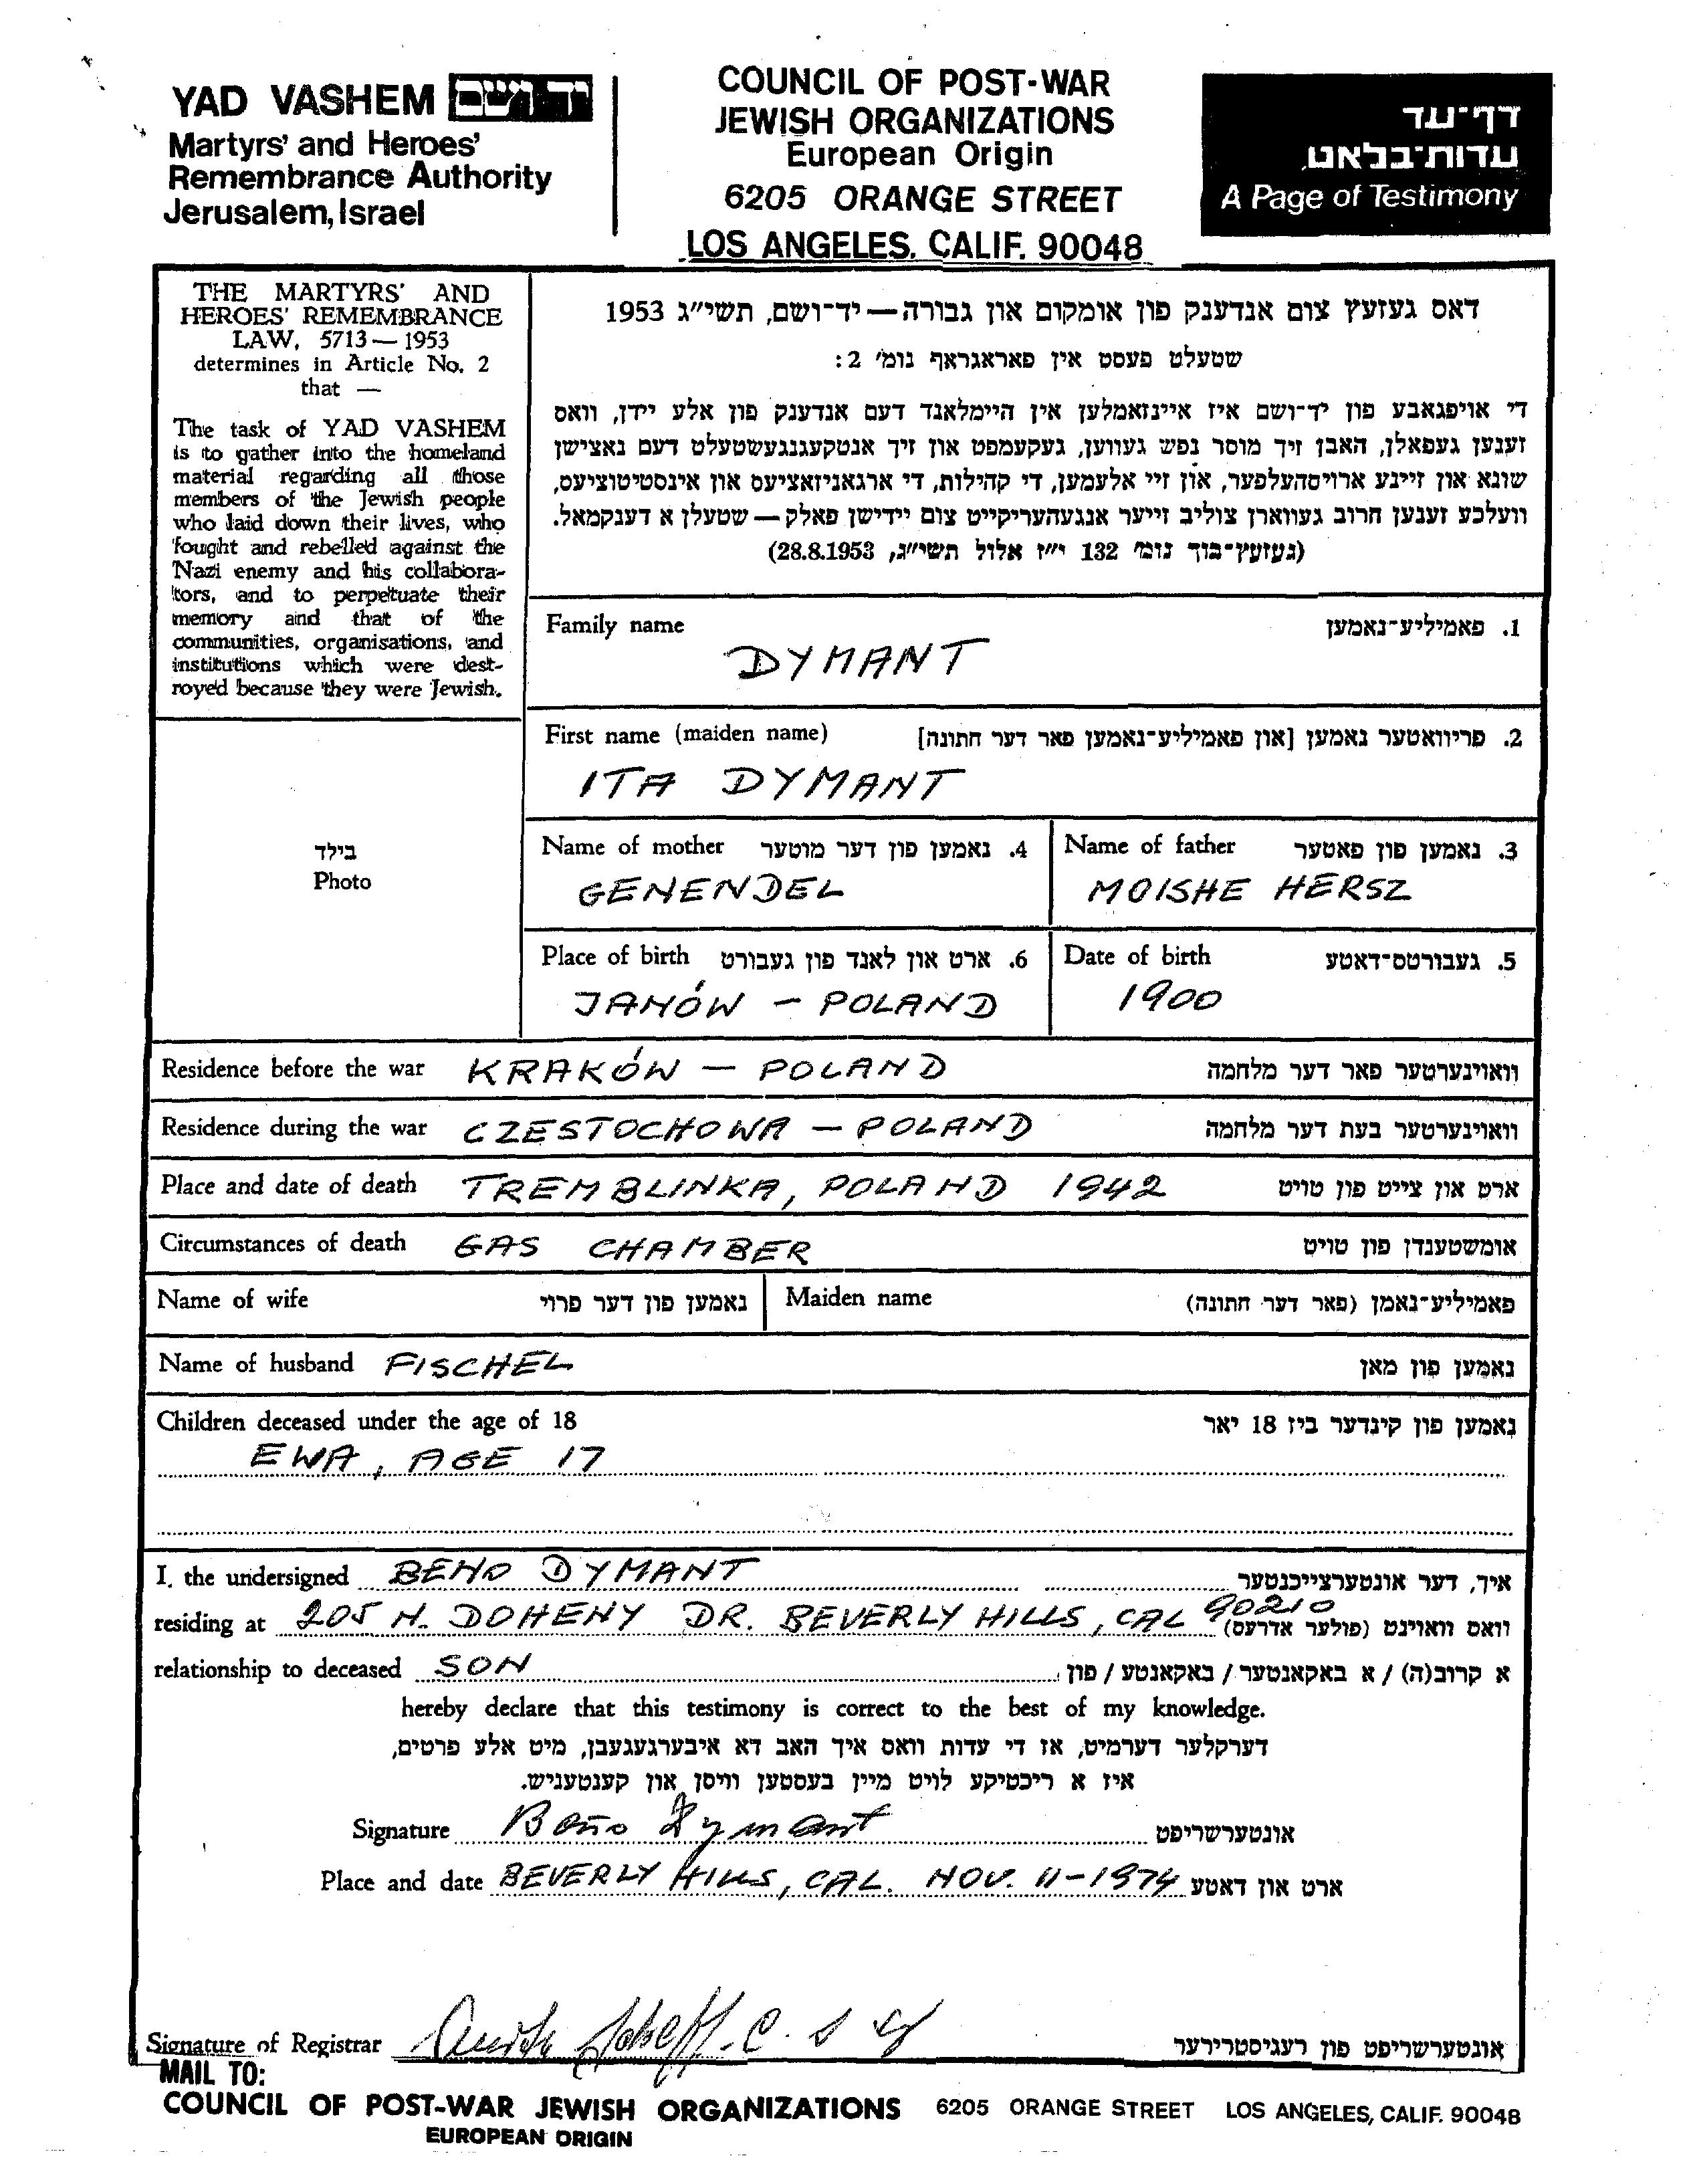 YAD VASHEM יד ושם
Martyrs' and Heroes'
Remembrance Authority
Jerusalem, Israel
COUNCIL OF POST-WAR
JEWISH ORGANIZATIONS
European Origin
6205 ORANGE STREET
LOS ANGELES, CALIF. 90048
דף-עד
עדות-בלאט
A Page of Testimony
THE MARTYRS' AND
HEROES' REMEMBRANCE
LAW, 5713—1953
determines in Article No. 2
that —
The task of YAD VASHEM
is to gather into the homeland
material regarding all those
members of the Jewish people
who laid down their lives, who
fought and rebelled against the
Nazi enemy and his collabora-
tors, and to perpetuate their
memory and that of the
communities, organisations, and
institutions which were dest-
royed because they were Jewish.
דאס געזעץ צום אנדענק פון אומקום און גבורה — יד-ושם, תשי"ג 1953
שטעלט פעסט אין פאראגראף נומ' 2:
די אויפגאבע פון יד-ושם איז איינזאמלען אין היימלאנד דעם אנדענק פון אלע יידן, וואס
זענען געפאלן, האבן זיך מוסר נפש געווען, געקעמפט און זיך אנטקעגנגעשטעלט דעם נאצישן
שונא און זיינע ארויסהעלפער, און זיי אלעמען, די קהילות, די ארגאניזאציעס און אינסטיטוציעס,
וועלכע זענען חרוב געווארן צוליב זייער אנגעהעריקייט צום יידישן פאלק — שטעלן א דענקמאל.
(געזעץ-בוך נומ' 132 י"ז אלול תשי"ג, 28.8.1953)
בילד
Photo
Family name 1. פאמיליע-נאמען
DYMANT
First name (maiden name) 2. פריוואטער נאמען [און פאמיליע-נאמען פאר דער חתונה]
ITA DYMANT
Name of mother 4. נאמען פון דער מוטער
GENENDEL
Name of father 3. נאמען פון פאטער
MOISHE HERSZ
Place of birth 6. ארט און לאנד פון געבורט
JANÓW – POLAND
Date of birth 5. געבורטס-דאטע
1900
Residence before the war KRAKÓW – POLAND וואוינערטער פאר דער מלחמה
Residence during the war CZESTOCHOWA – POLAND וואוינערטער בעת דער מלחמה
Place and date of death TREMBLINKA, POLAND 1942 ארט און צייט פון טויט
Circumstances of death GAS CHAMBER אומשטענדן פון טויט
Name of wife נאמען פון דער פרוי Maiden name פאמיליע-נאמן (פאר דער חתונה)
Name of husband FISCHEL נאמען פון מאן
Children deceased under the age of 18 נאמען פון קינדער ביז 18 יאר
EWA, AGE 17
I, the undersigned BENO DYMANT איך, דער אונטערצייכנטער
residing at 205 N. DOHENY DR. BEVERLY HILLS, CAL 90210 וואס וואוינט (פולער אדרעס)
relationship to deceased SON א קרוב(ה) / א באקאנטער / באקאנטע / פון
hereby declare that this testimony is correct to the best of my knowledge.
דערקלער דערמיט, אז די עדות וואס איך האב דא איבערגעגעבן, מיט אלע פרטים,
איז א ריכטיקע לויט מיין בעסטען וויסן און קענטעניש.
Signature Beno Dymant אונטערשריפט
Place and date BEVERLY HILLS, CAL. NOV. 11-1974 ארט און דאטע
Signature of Registrar אונטערשריפט פון רעגיסטרירער
MAIL TO:
COUNCIL OF POST-WAR JEWISH ORGANIZATIONS 6205 ORANGE STREET LOS ANGELES, CALIF. 90048
EUROPEAN ORIGIN